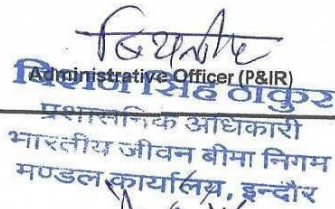 Administrative Officer (P&IR)
सिंह ठाकुर
प्रशासनिक अधिकारी
भारतीय जीवन बीमा निगम
मण्डल कार्यालय, इन्दौर